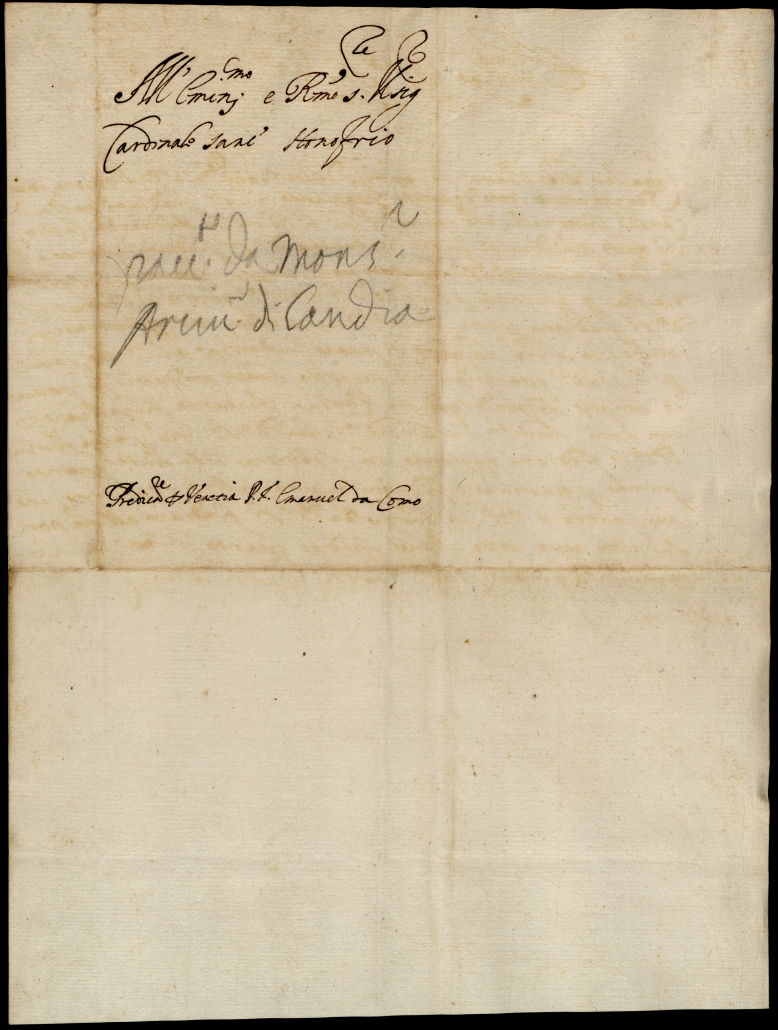 All' Emin.mo e R.mo s. Card.le
Cardinale sant' Honofrio
racc.ta da Mons.r
Arciv.o di Candia
Predicat.re Venetia P. F. Emanuel da Como